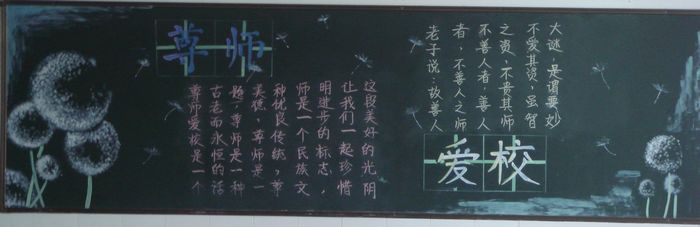 尊师
尊师爱校是一个
古老而永恒的话
题，尊师是一种
美德，尊师是一
种优良传统，尊
师是一个民族文
明进步的标志，
让我们一起珍惜
这段美好的光阴
老子说：故善人
者，不善人之师
不善人者，善人
之资，不贵其师
不爱其资，虽智
大谜，是谓要妙
爱校